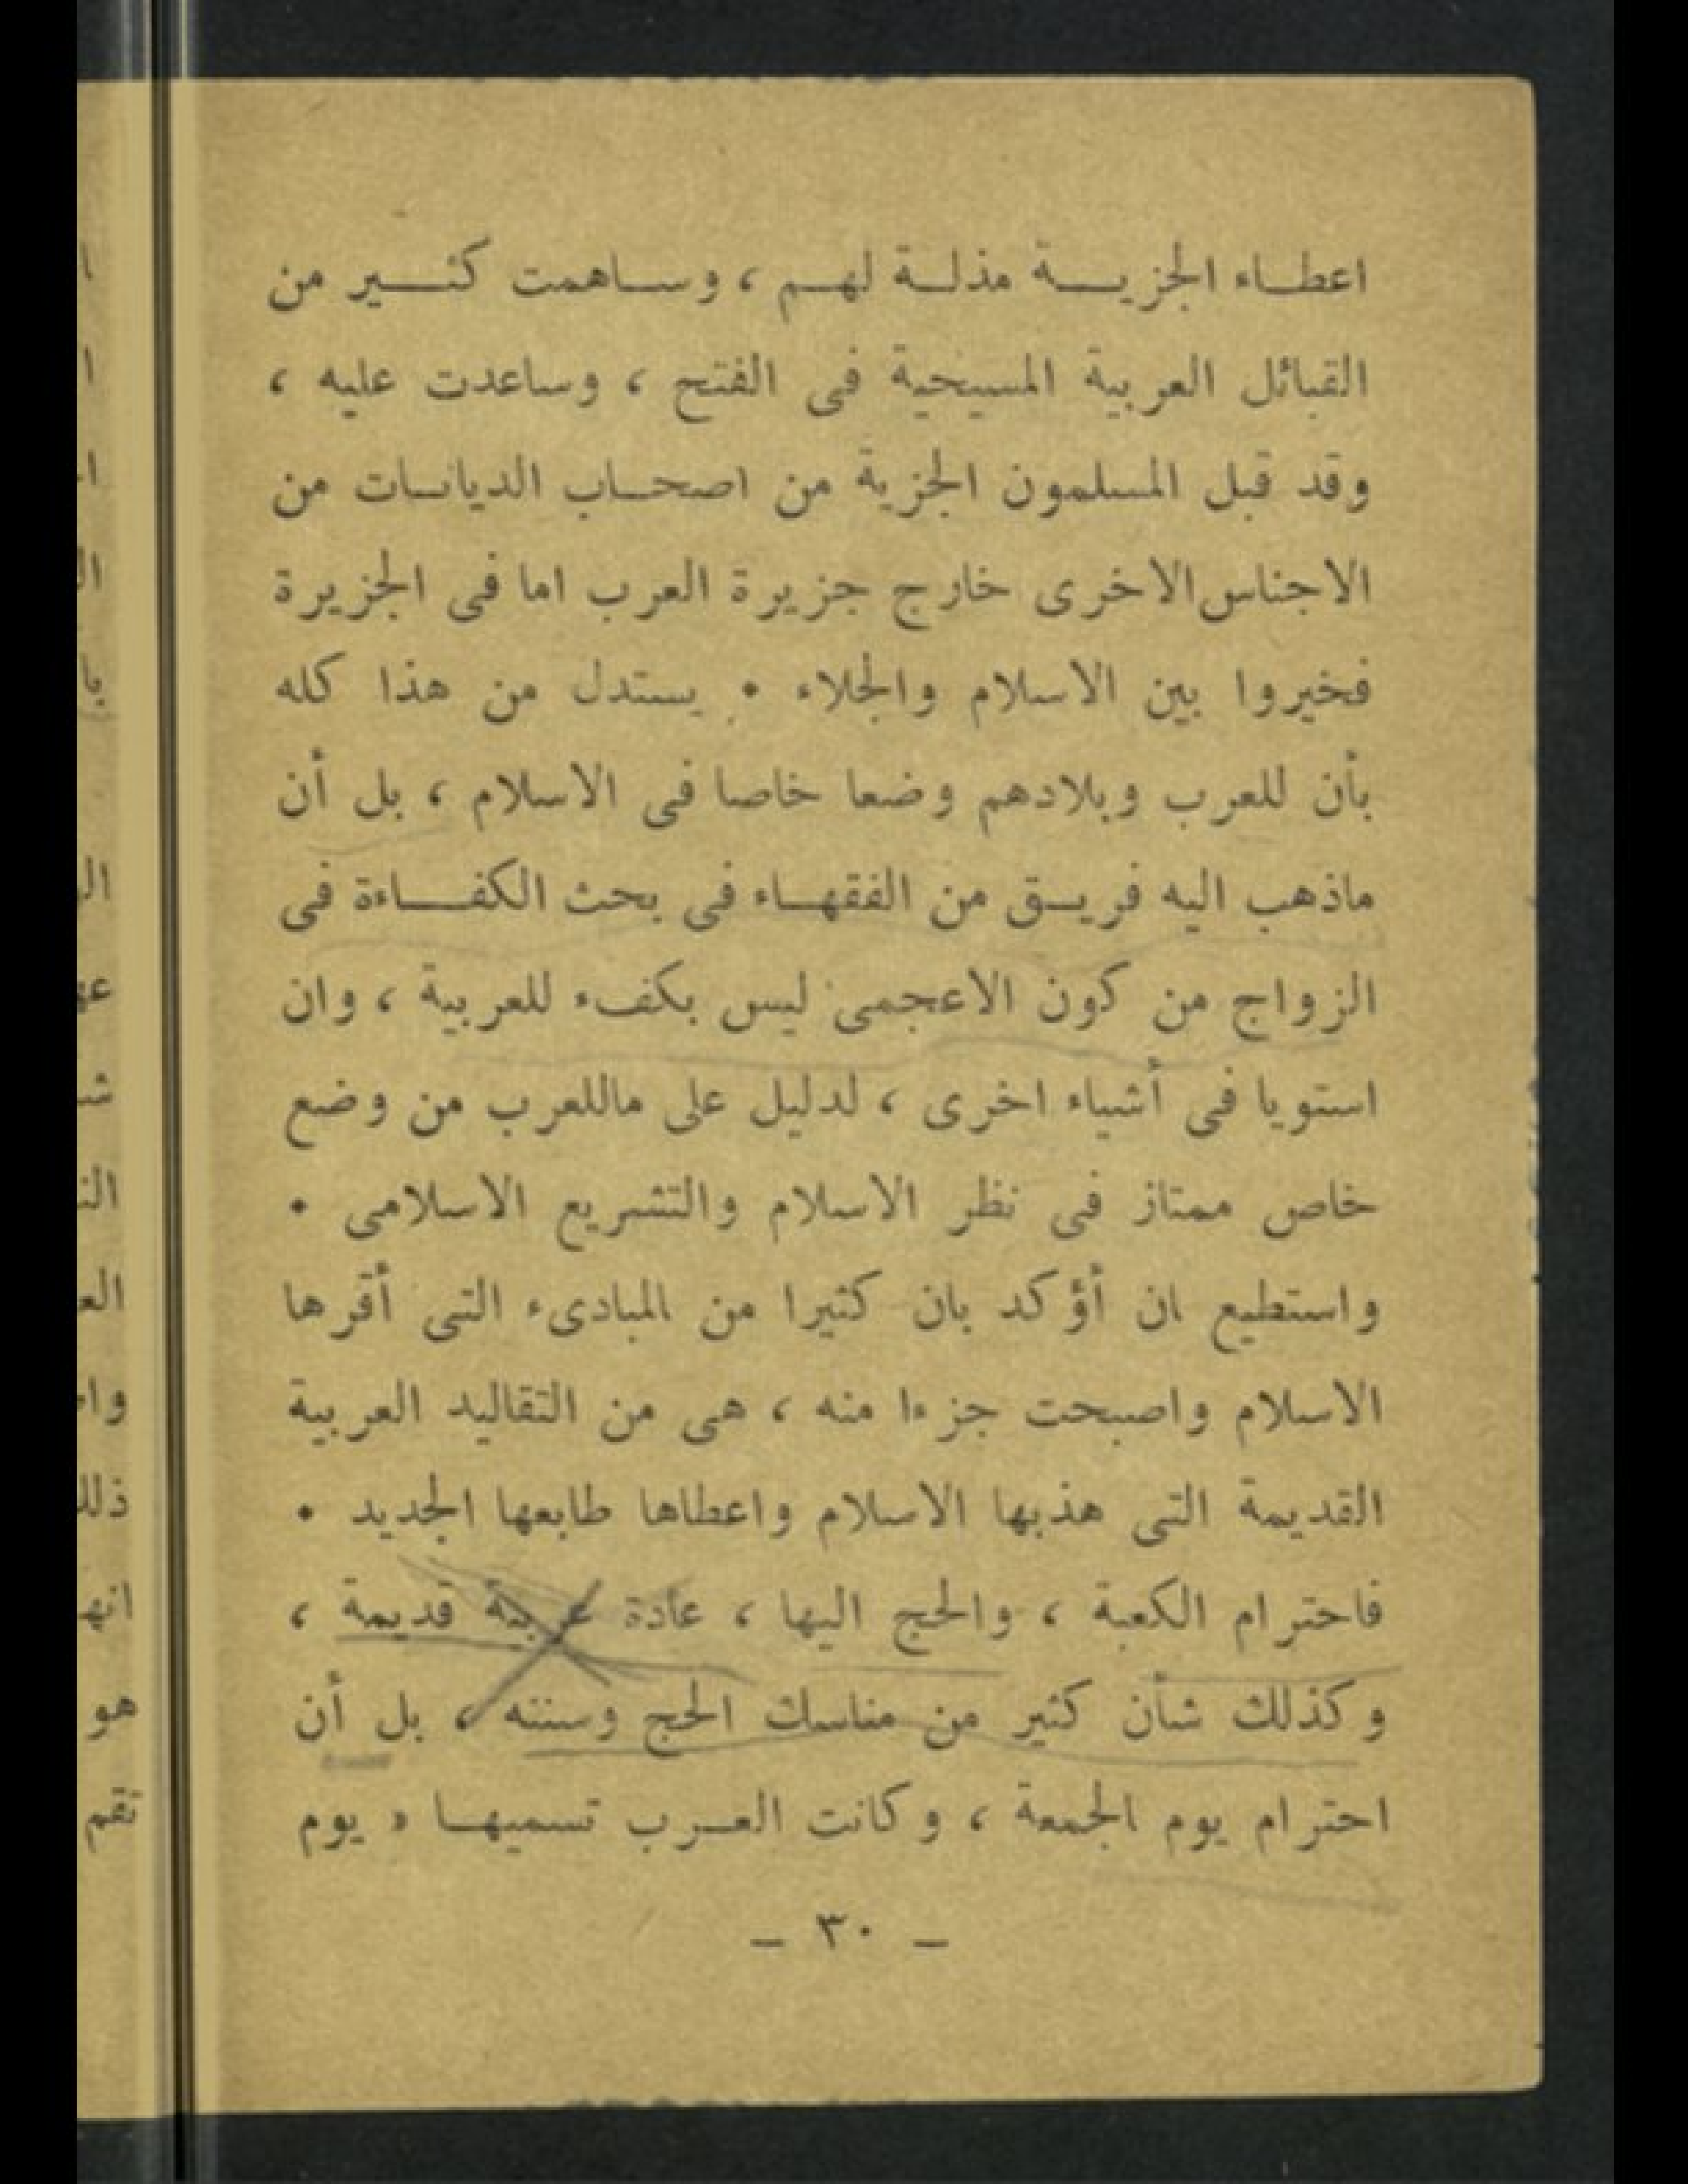 اعطاء الجزية مذلة لهم ، وساهمت كثير من
القبائل العربية المسيحية فى الفتح ، وساعدت عليه ،
وقد قبل المسلمون الجزية من اصحاب الديانات من
الاجناس الاخرى خارج جزيرة العرب اما فى الجزيرة
فخيروا بين الاسلام والجلاء . يستدل من هذا كله
بأن للعرب وبلادهم وضعا خاصا فى الاسلام ، بل أن
ماذهب اليه فريق من الفقهاء فى بحث الكفاءة فى
الزواج من كون الاعجمى ليس بكفء للعربية ، وان
استويا فى أشياء اخرى ، لدليل على ماللعرب من وضع
خاص ممتاز فى نظر الاسلام والتشريع الاسلامى .
واستطيع ان أؤكد بان كثيرا من المبادىء التى أقرها
الاسلام واصبحت جزءا منه ، هى من التقاليد العربية
القديمة التى هذبها الاسلام واعطاها طابعها الجديد .
فاحترام الكعبة ، والحج اليها ، عادة عربية قديمة ،
وكذلك شأن كثير من مناسك الحج وسننه ، بل أن
احترام يوم الجمعة ، وكانت العرب تسميها « يوم
– ٣٠ –